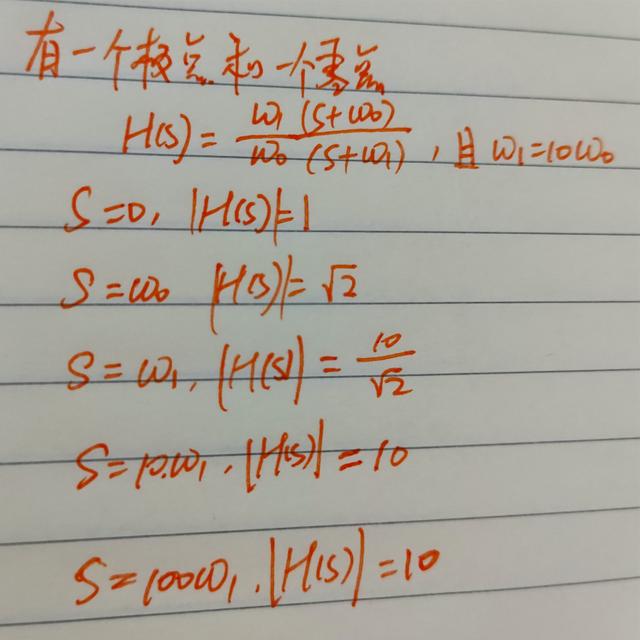 有一个极点和一个零点
H(s) = ω₁ (s+ω₀) / ω₀ (s+ω₁) , 且 ω₁=10ω₀
S=0, |H(s)|=1
S=ω₀ |H(s)|=√2
S=ω₁, |H(s)| = 10/√2
S=10ω₁, |H(s)|=10
S=100ω₁, |H(s)|=10